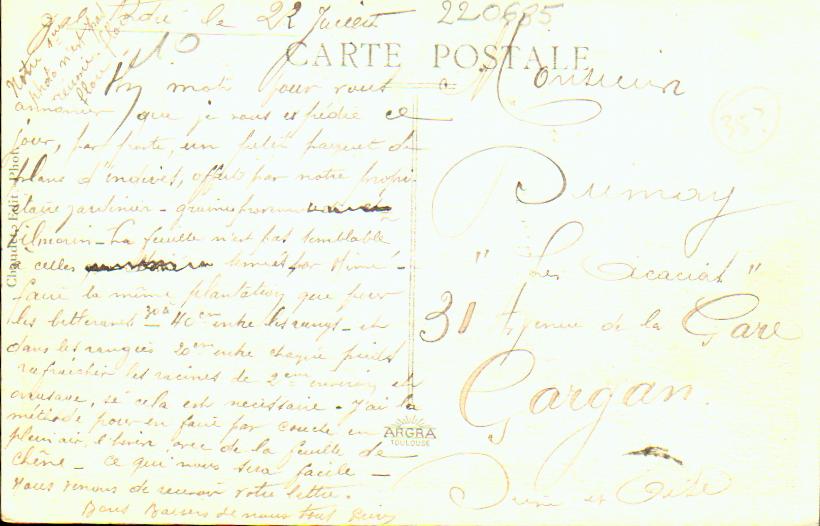 le 22 Juillet
220635
Notre
photo n'est pas
10
CARTE POSTALE
mots pour vous
Monsieur
annoncer que je vous expédie ce
jour, par poste, un petit paquet de
plans d'endives, offert par notre propri-
étaire jardinier - graines
Vilmorin - La feuille n'est pas semblable
à celles semées par
faire la même plantation que pour
les betteraves 30 à 40 cm entre les rangs - et
dans les rangées 20 cm entre chaque pieds
rafraichir les racines de 2 cm environ
, si cela est nécessaire - J'ai la
méthode pour en faire par couche en
plein air l'hiver avec de la feuille de
chêne - ce qui nous sera facile -
nous venons de recevoir votre lettre.
Bons Baisers de nous tous
Chaudet Edit. Phot.
ARGRA
TOULOUSE
357
"Les Acacias"
31 Avenue de la Gare
Gargan.
Seine et Oise